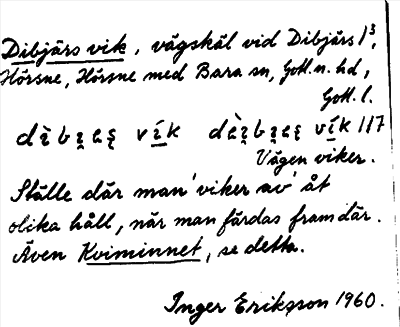 Dibjärs vik, vägskäl vid Dibjärs 1³,
Hörsne, Hörsne med Bara sn, Gotl. n. hd,
Gotl. l.
vík vík 117
Vägen viker.
Ställe där man 'viker av' åt
olika håll, när man färdas fram där.
Även Kviminnet, se detta.
Inger Erikson 1960.